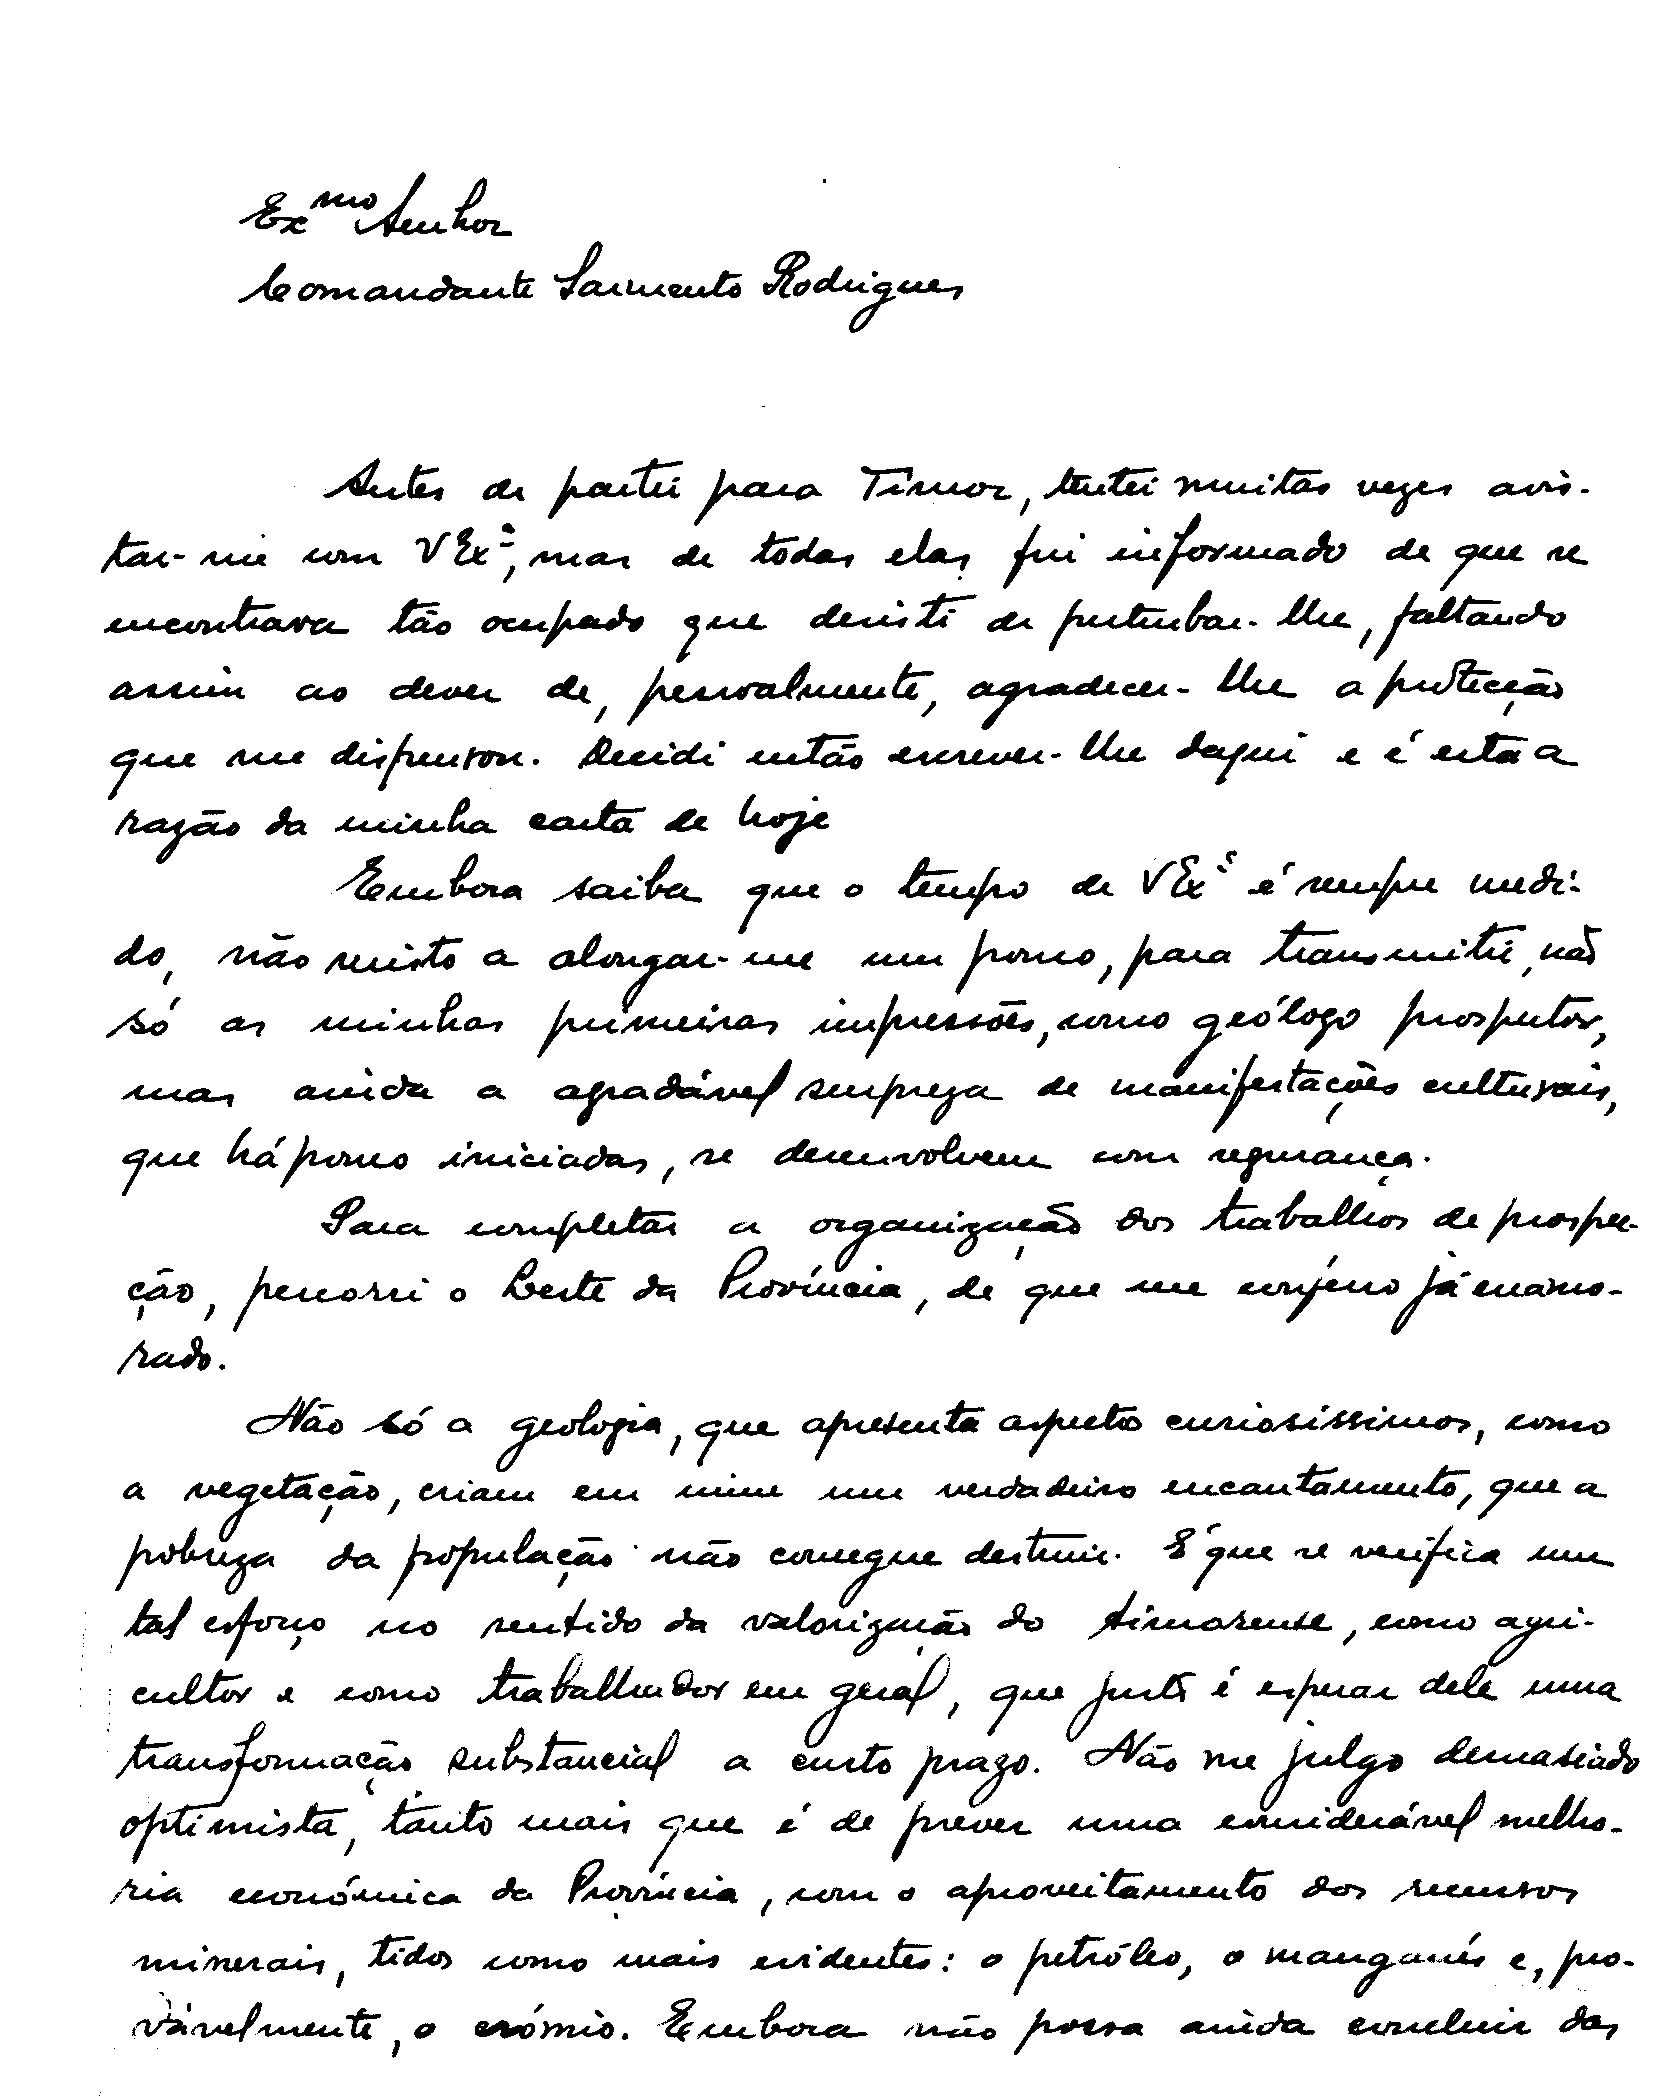 Exmo Senhor
Comandante Sarmento Rodrigues
Antes de partir para Timor, tentei muitas vezes avis-
tar-me com VExª, mas de todas elas fui informado de que se
encontrava tão ocupado que desisti de perturbar-lhe, faltando
assim ao dever de, pessoalmente, agradecer-lhe a protecção
que me dispensou. Decidi então escrever-lhe daqui e é esta a
razão da minha carta de hoje
Embora saiba que o tempo de VExª é sempre medi-
do, não resisto a alongar-me um pouco, para transmitir, não
só as minhas primeiras impressões, como geólogo prospector,
mas ainda a agradável surpreza de manifestações culturais,
que há pouco iniciadas, se desenvolvem com segurança.
Para completar a organização dos trabalhos de prospec-
ção, percorri o Leste da Província, de que me confesso já enamo-
rado.
Não só a geologia, que apresenta aspectos curiosíssimos, como
a vegetação, criam em mim um verdadeiro encantamento, que a
pobreza da população não consegue destruir. É que se verifica um
tal esforço no sentido da valorização do timorense, como agri-
cultor e como trabalhador em geral, que justo é esperar dele uma
transformação substancial a curto prazo. Não me julgo demasiado
optimista, tanto mais que é de prever uma considerável melho-
ria económica da Província, com o aproveitamento dos recursos
minerais, tidos como mais evidentes: o petróleo, o manganés e, pro-
vàvelmente, o crómio. Embora não possa ainda concluir das